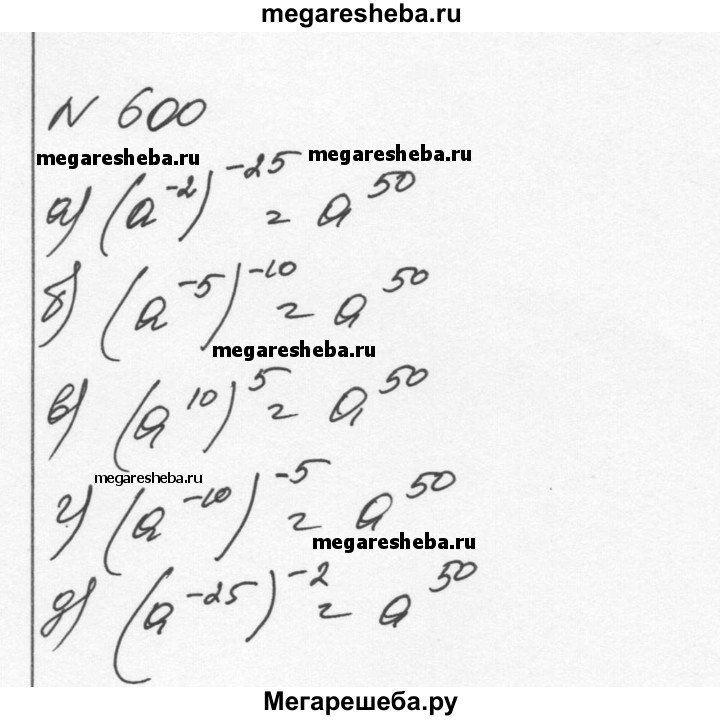 megaresheba.ru
N 600
megaresheba.ru megaresheba.ru
а) (a⁻²)⁻²⁵ = a⁵⁰
б) (a⁻⁵)⁻¹⁰ = a⁵⁰
megaresheba.ru
в) (a¹⁰)⁵ = a⁵⁰
megaresheba.ru
г) (a⁻¹⁰)⁻⁵ = a⁵⁰
megaresheba.ru
д) (a⁻²⁵)⁻² = a⁵⁰
Мегарешеба.ру